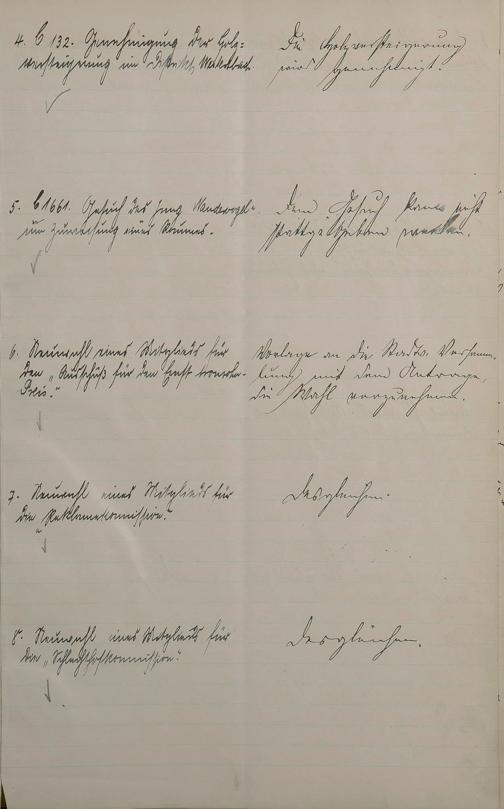 4. C 132. Genehmigung der Holz-
versteigerung im Distrikt
Die Holzversteigerung
wird genehmigt.
5. C 1661. Gesuch des Jung Wandervogel
um Zuweisung eines Raumes.
Dem Gesuch kann nicht
stattgegeben werden.
6. Neuwahl eines Mitglieds für
den „Ausschuß für den Ernst
Preis."
Vorlage an die Stadtv. Versamm-
lung mit dem Antrage,
die Wahl vorzunehmen.
7. Neuwahl eines Mitglieds für
die „Reklamekommission."
Desgleichen.
8. Neuwahl eines Mitglieds für
die „Schlachthofkommission."
Desgleichen.